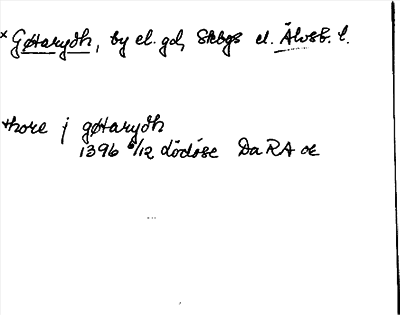 * Gøtarydh, by el. gd, Skbgs el. Älvsb. l.
thore j gøtarydh
1396 6/12 Lödöse DaRA or